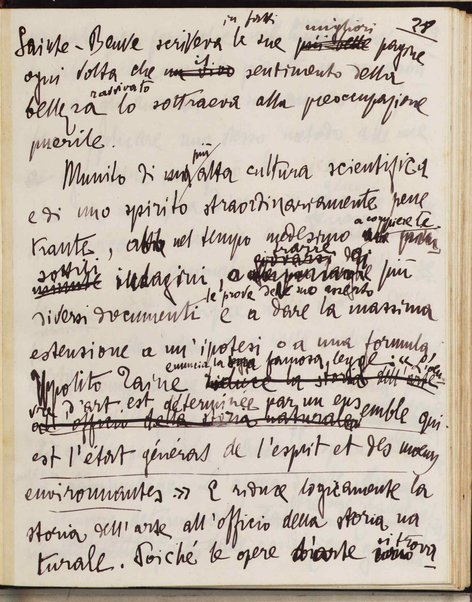 28
in fatti migliori
Sainte-Beuve scriveva le sue più belle pagine
ogni volta che un vivo sentimento della
ravvivato
bellezza lo sottraeva alla preoccupazione
puerile.
più
Munito di una alta cultura scientifica
e di uno spirito straordinariamente pene
trante, atto nel tempo medesimo a compiere le
sottili indagini, a trarre da i più
le prove delle sue
diversi documenti e a dare la massima
estensione a un'ipotesi o a una formula
Ippolito Taine enuncia la sua famosa legge: «L'œu
vre d'art est déterminée par un ensemble qui
est l'état général de l'esprit et des mœurs
environnantes» E riduce logicamente la
storia dell'arte all'officio della storia na
turale. Poiché le opere d'arte si trova